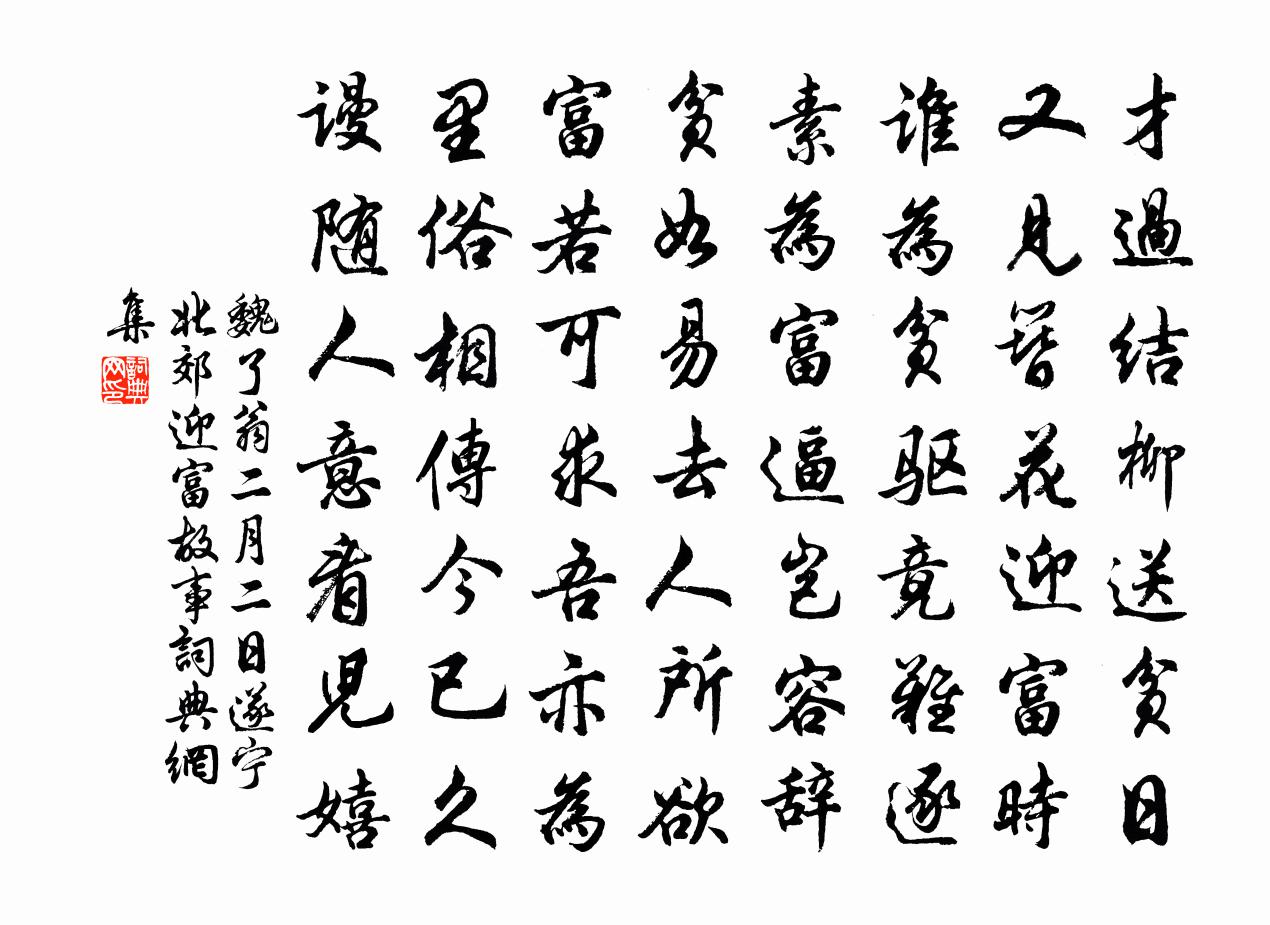 才過结柳送貧日
又見簪花迎富時
谁為貧驱竟難逐
素為富逼岂容辞
貧如易去人所欲
富若可求吾亦為
里俗相傳今已久
谩随人意看児嬉
魏了翁二月二日遂宁
北郊迎富故事詞典網
集
詞典
网印